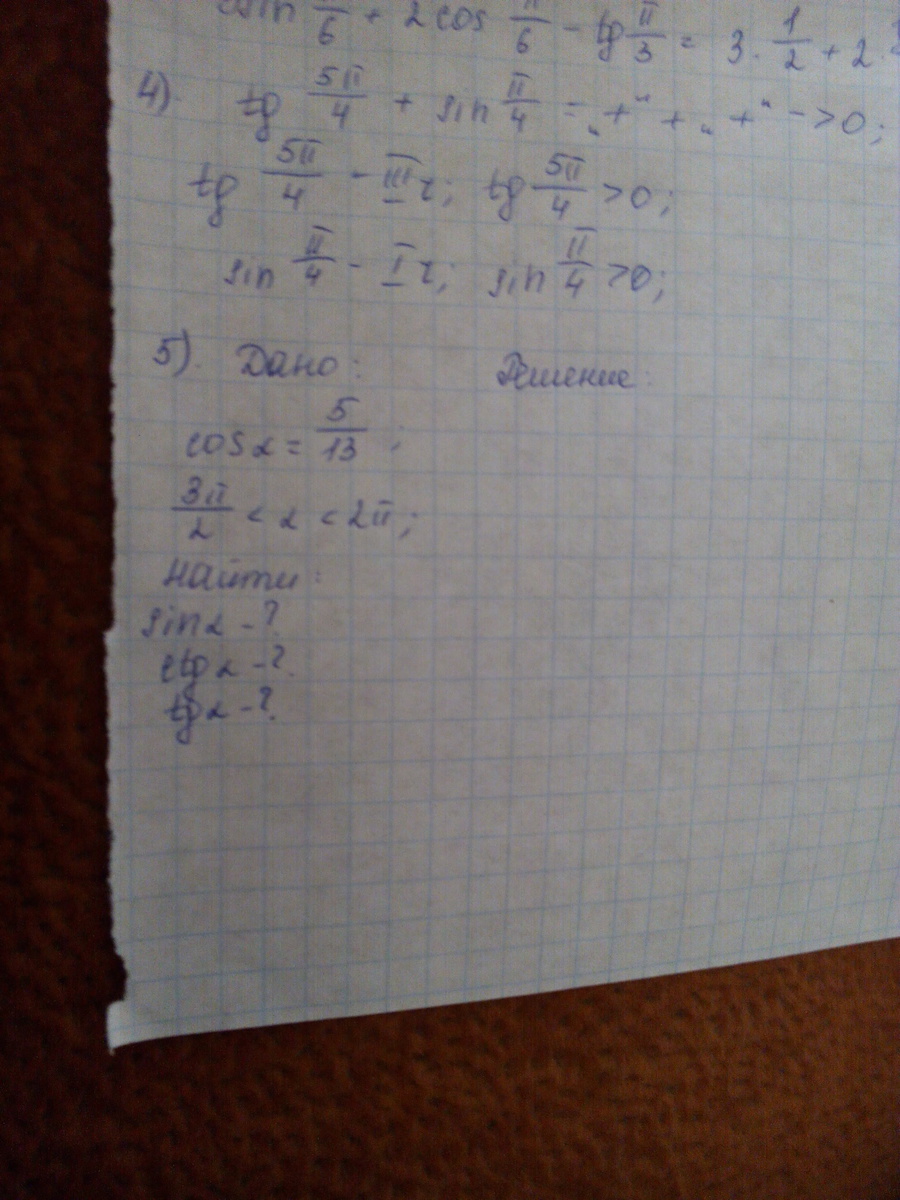 sin π/6 + 2 cos π/6 - tg π/3 = 3 · 1/2 + 2 ·
4). tg 5π/4 + sin π/4 = „+“ + „+“ -> 0;
tg 5π/4 - III ч; tg 5π/4 > 0;
sin π/4 - I ч; sin π/4 > 0;
5). Дано: Решение:
cos α = 5/13;
3π/2 < α < 2π;
Найти:
sin α - ?
ctg α - ?
tg α - ?